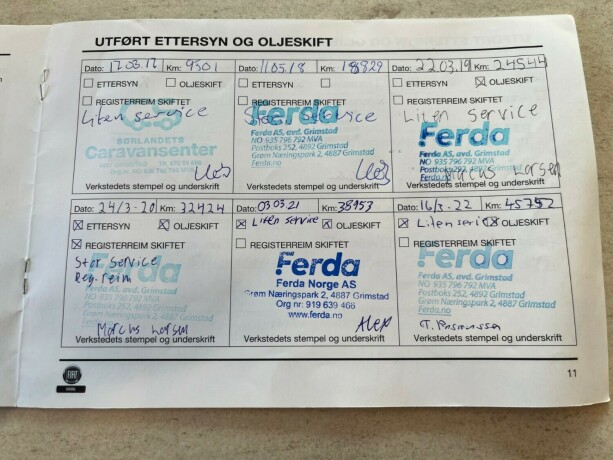 UTFØRT ETTERSYN OG OLJESKIFT
Dato: 12.03.17 Km: 9301
ETTERSYN OLJESKIFT
REGISTERREIM SKIFTET
Liten service
SØRLANDETS
Caravansenter
Verkstedets stempel og underskrift
Dato: 11/05/18 Km: 18829
Stor service
Ferda
Ferda AS, avd. Grimstad
NO 935 796 792 MVA
Postboks 252, 4892 Grimstad
Grøm Næringspark 2, 4887 Grimstad
Ferda.no
Verkstedets stempel og underskrift
Dato: 22.03.19 Km: 24544
ETTERSYN OLJESKIFT
REGISTERREIM SKIFTET
Liten service
Ferda
Ferda AS, avd. Grimstad
NO 935 796 792 MVA
Postboks 252, 4892 Grimstad
Grøm Næringspark 2, 4887 Grimstad
Ferda.no
Marcus Larsen
Verkstedets stempel og underskrift
Dato: 24/3-20 Km: 32424
ETTERSYN OLJESKIFT
REGISTERREIM SKIFTET
Stor Service
Reg.reim
Ferda
Ferda AS, avd. Grimstad
NO 935 796 792 MVA
Postboks 252, 4892 Grimstad
Grøm Næringspark 2, 4887 Grimstad
Ferda.no
Marcus Larsen
Verkstedets stempel og underskrift
Dato: 03.03.21 Km: 38953
Liten service OLJESKIFT
REGISTERREIM SKIFTET
Ferda
Ferda Norge AS
Grøm Næringspark 2, 4887 Grimstad
Org nr: 919 639 466
www.ferda.no
Alex
Verkstedets stempel og underskrift
Dato: 16/3-22 Km: 45752
Liten service OLJESKIFT
REGISTERREIM SKIFTET
Ferda
Ferda AS, avd. Grimstad
NO 935 796 792 MVA
Postboks 252, 4892 Grimstad
Grøm Næringspark 2, 4887 Grimstad
Ferda.no
T. Rasmussen
Verkstedets stempel og underskrift
FIAT
11